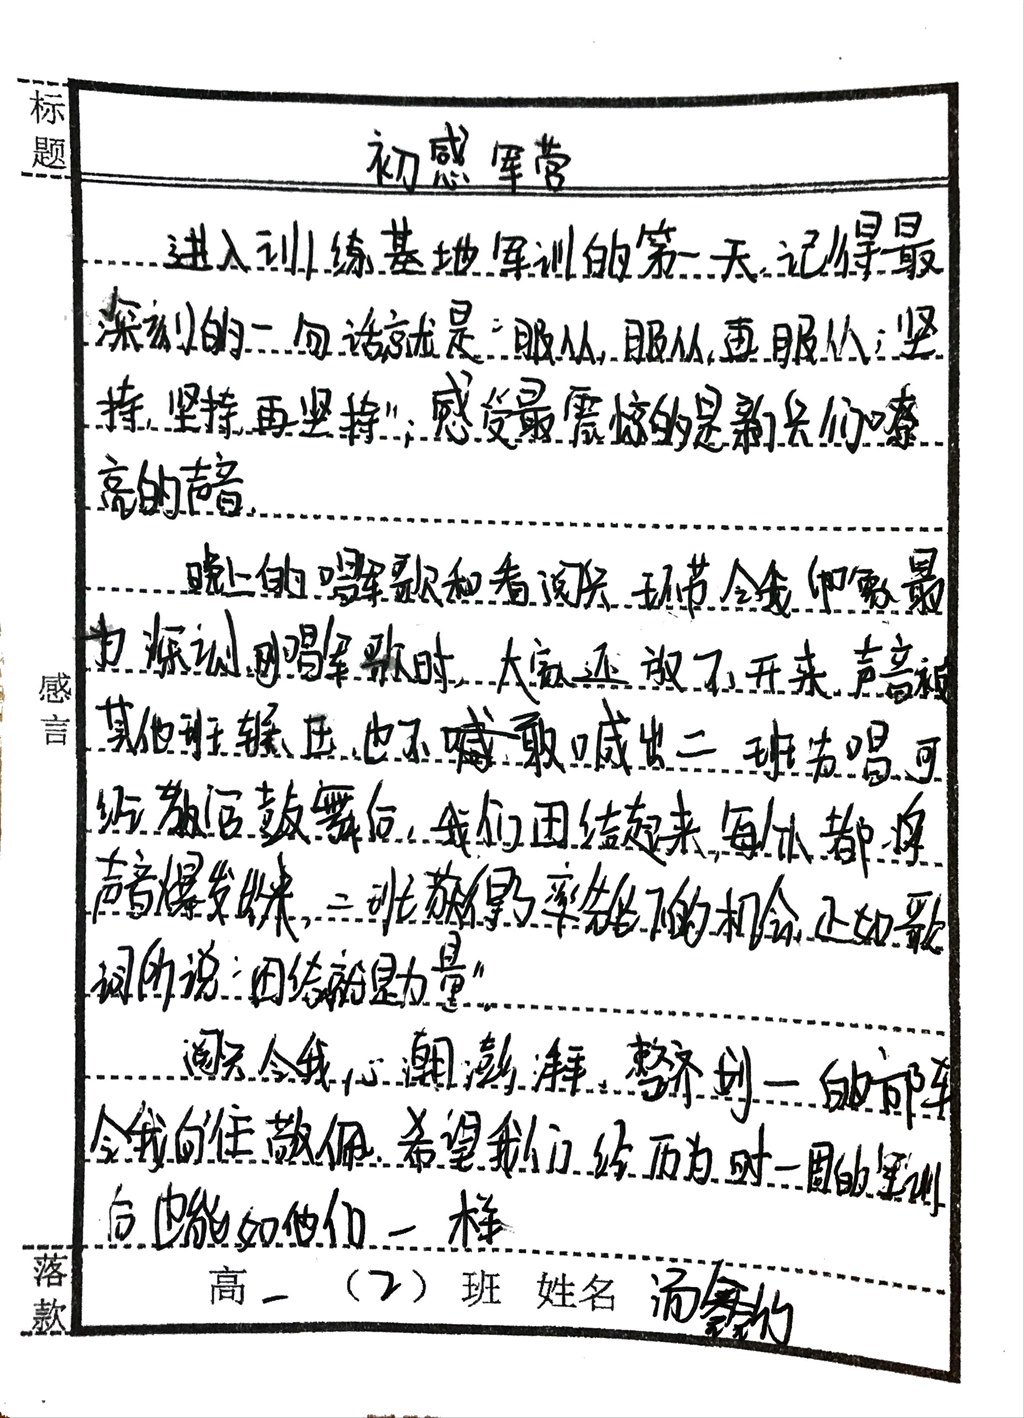 标题
初感军营
进入训练基地军训的第一天,记得最
深刻的一句话就是“服从,服从,再服从;坚
持,坚持,再坚持”;感受最震惊的是新兵们嘹
亮的声音.
晚上的唱军歌和看阅兵环节令我印象最
为深刻,刚唱军歌时,大家还放不开来,声音被
其他班辗压,也不敢喊出二班为唱,可
经教官鼓舞后,我们团结起来,每个都将
声音爆发出来,二班获得了率先下的机会.正如歌
词所说:“团结就是力量”.
阅兵令我心潮澎湃,整齐划一的方阵
令我由往敬佩.希望我们经历为时一周的军训
后也能如他们一样
感言
落款
高一(2)班 姓名 汤